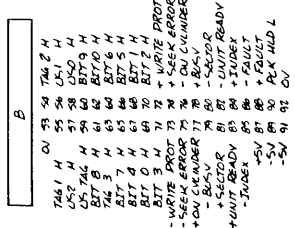 B
0V 53 54 TAG 2 H
TAG 1 H 55 56 US1 H
US2 H 57 58 US0 H
US TAG H 59 60 BIT 9 H
BIT 8 H 61 62 BIT 10 H
TAG 3 H 63 64 BIT 6 H
BIT 7 H 65 66 BIT 5 H
BIT 4 H 67 68 BIT 1 H
BIT 0 H 69 70 BIT 2 H
BIT 3 H 71 72 + WRITE PROT
- WRITE PROT 73 74 + SEEK ERROR
- SEEK ERROR 75 76 - ON CYLINDER
+ ON CYLINDER 77 78 BUSY
- BUSY 79 80 - SECTOR
+ SECTOR 81 82 - UNIT READY
+ UNIT READY 83 84 + INDEX
- INDEX 85 86 - FAULT
+5V 87 88 + FAULT
89 90 PCK HLD L
91 92 0V